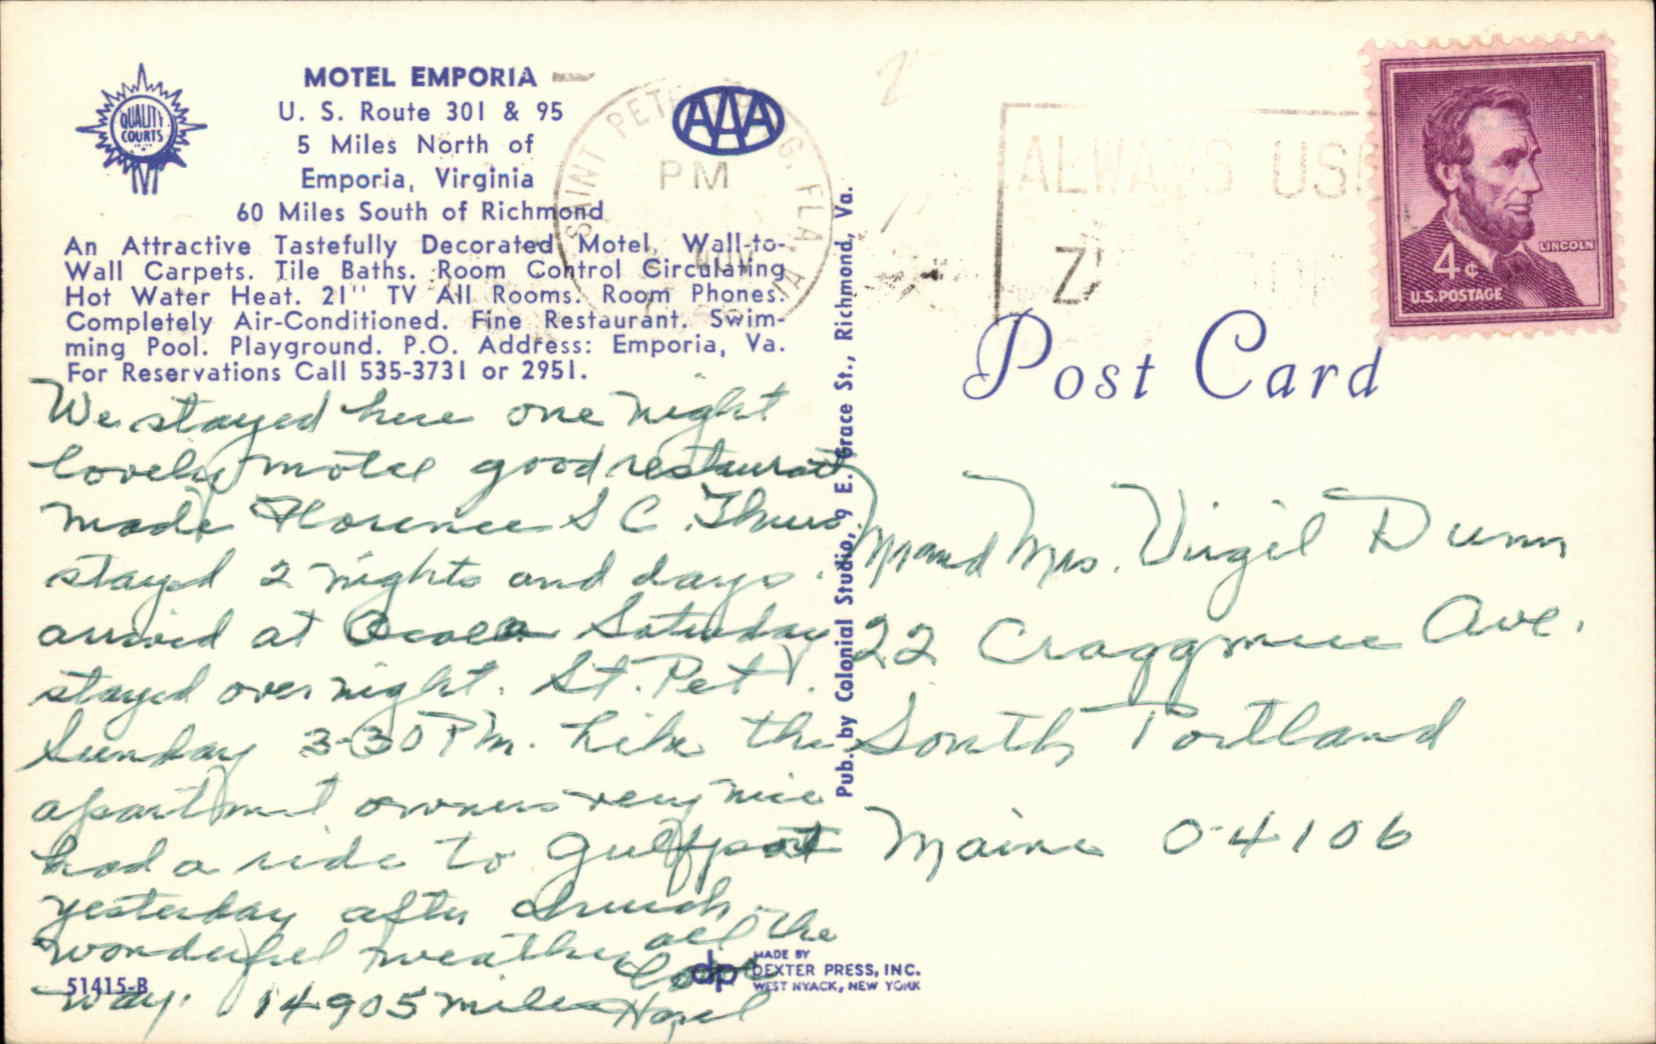 QUALITY
COURTS
MOTEL EMPORIA
U. S. Route 301 & 95
5 Miles North of
Emporia, Virginia
60 Miles South of Richmond
An Attractive Tastefully Decorated Motel, Wall-to-
Wall Carpets. Tile Baths. Room Control Circulating
Hot Water Heat. 21" TV All Rooms. Room Phones.
Completely Air-Conditioned. Fine Restaurant. Swim-
ming Pool. Playground. P.O. Address: Emporia, Va.
For Reservations Call 535-3731 or 2951.
AAA
SAINT PETERSBURG, FLA.
PM
ALWAYS USE
LINCOLN
4¢
U.S.POSTAGE
Post Card
We stayed here one night
lovely motel good restaurant
made Florence S C. Thurs.
stayed 2 nights and days.
arrived at Ocala Saturday
stayed over night. St. Pet.
Sunday 3-30 PM. Like the
apartment owners very nice
had a ride to Gulfport
yesterday after church.
wonderful weather all the
way. 14905 miles
Love
Hazel
Pub. by Colonial Studio, 9 E. Grace St., Richmond, Va.
Mr and Mrs. Virgil Dunn
22 Craggmere Ave.
South Portland
Maine 04106
51415-B
dp
MADE BY
DEXTER PRESS, INC.
WEST NYACK, NEW YORK